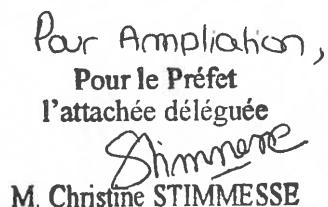 Pour Ampliation,
Pour le Préfet
l'attachée déléguée
Stimmesse
M. Christine STIMMESSE